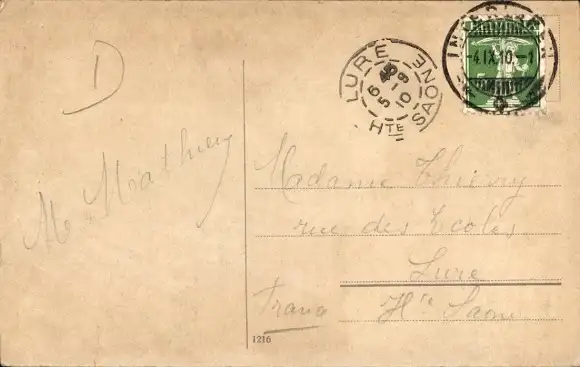 D
M Mathieu
LURE
6 45
5 -9
10
Hte SAONE
INTERLAKEN
-4.IX.10.-1
5
Madame Thierry
rue des Ecoles
Lure
Hte Saone
France
1216